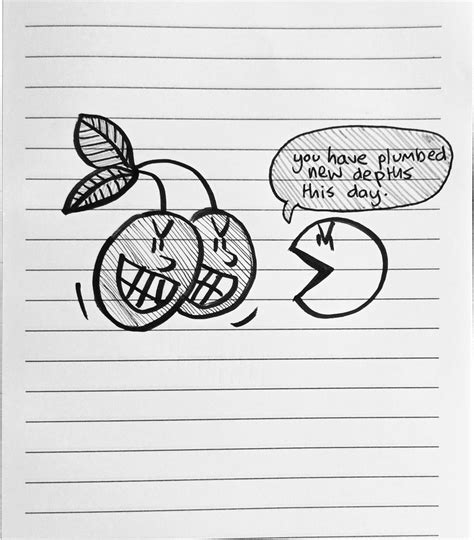 you have plumbed
new depths
this day.